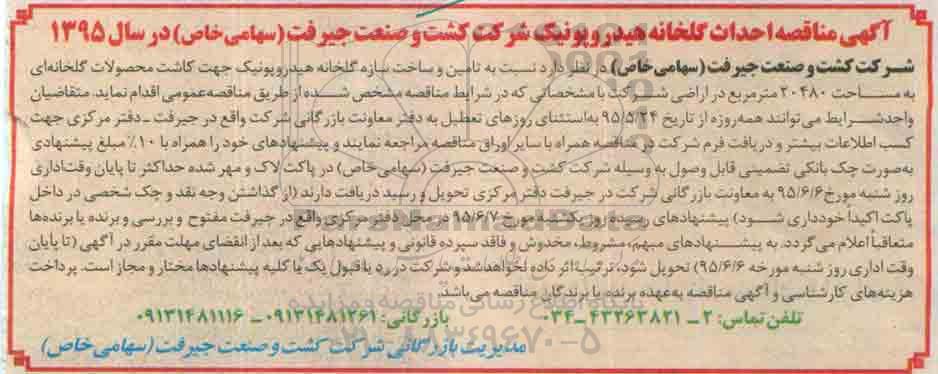 آگهی مناقصه احداث گلخانه هیدروپونیک شرکت کشت و صنعت جیرفت (سهامی خاص) در سال ۱۳۹۵
شــرکت کشت و صنعت جیرفت (سهامی خاص) در نظر دارد نسبت به تامین و ساخت سازه گلخانه هیدروپونیک جهت کاشت محصولات گلخانه‌ای
به مســاحت ۲۰۴۸۰ مترمربع در اراضی شــرکت با مشخصاتی که در شرایط مناقصه مشخص شــده از طریق مناقصه عمومی اقدام نماید. متقاضیان
واجد شــرایط می‌توانند همه روزه از تاریخ ۹۵/۵/۲۴ به استثنای روزهای تعطیل به دفتر معاونت بازرگانی شرکت واقع در جیرفت ـ دفتر مرکزی جهت
کسب اطلاعات بیشتر و دریافت فرم شرکت در مناقصه همراه با سایر اوراق مناقصه مراجعه نمایند و پیشنهادهای خود را همراه با ۱۰٪ مبلغ پیشنهادی
به‌صورت چک بانکی تضمینی قابل وصول به وسیله شرکت کشت و صنعت جیرفت (سهامی خاص) در پاکت لاک و مهر شده حداکثر تا پایان وقت اداری
روز شنبه مورخ ۹۵/۶/۶ به معاونت بازرگانی شرکت در جیرفت دفتر مرکزی تحویل و رسید دریافت دارند (از گذاشتن وجه نقد و چک شخصی در داخل
پاکت اکیداً خودداری شــود) پیشنهادهای رسیده روز یکشنبه مورخ ۹۵/۶/۷ در محل دفتر مرکزی واقع در جیرفت مفتوح و بررسی و برنده یا برنده‌ها
متعاقباً اعلام می‌گردد. به پیشــنهادهای مبهم، مشروط، مخدوش و فاقد سپرده قانونی و پیشنهادهایی که بعد از انقضای مهلت مقرر در آگهی (تا پایان
وقت اداری روز شنبه مورخه ۹۵/۶/۶) تحویل شود، ترتیب اثر داده نخواهد شد و شرکت در رد یا قبول یک یا کلیه پیشنهادها مختار و مجاز است. پرداخت
هزینه‌های کارشناسی و آگهی مناقصه به عهده برنده یا برندگان مناقصه می‌باشد.
پایگاه اطلاع رسانی مناقصه و مزایده
تلفن تماس: ۲ـ ۴۳۲۶۳۸۲۱-۰۳۴ بازرگانی: ۰۹۱۳۱۴۸۱۲۶۱ ـ ۰۹۱۳۱۴۸۱۱۱۶
مدیریت بازرگانی شرکت کشت و صنعت جیرفت (سهامی خاص)